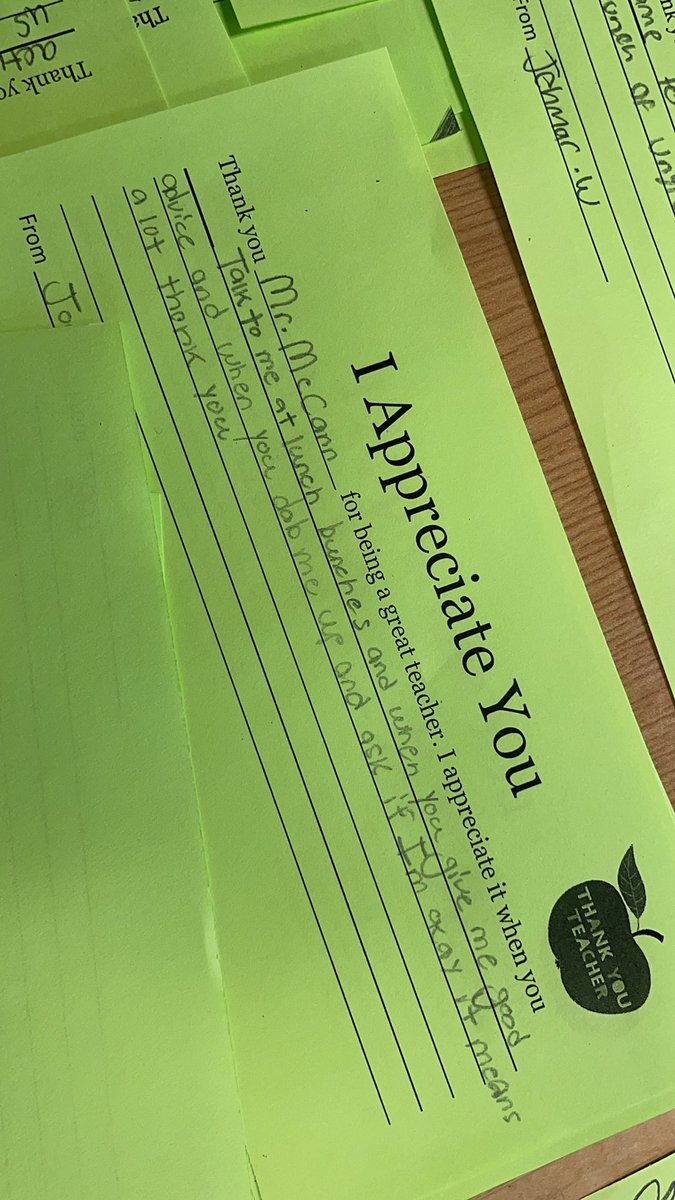 I Appreciate You
THANK YOU
TEACHER
Thank you Mr. McCann for being a great teacher. I appreciate it when you
Talk to me at lunch bunches and when you give me good
advice and when you dab me up and ask if I'm okay it means
a lot thank you
From Jo
From Johmar.W
Thank yo
Tha